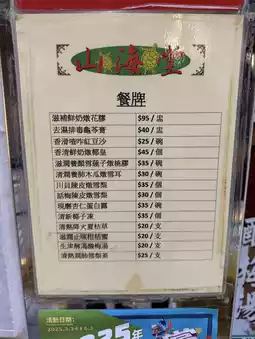 山海堂
餐牌
滋補鮮奶燉花膠 $95 / 盅
去濕排毒龜苓膏 $40 / 盅
香滑喳咋紅豆沙 $25 / 碗
香滑鮮奶燉椰皇 $45 / 個
滋潤養顏雪蓮子燉桃膠 $35 / 碗
清潤養肺木瓜燉雪耳 $30 / 碗
川貝陳皮燉雪梨 $35 / 個
話梅陳皮燉雪梨 $30 / 個
現磨杏仁蛋白露 $35 / 碗
清新椰子凍 $35 / 個
清熱降火夏枯草 $20 / 支
滋潤正咳柑桔蜜 $20 / 支
生津解渴酸梅湯 $20 / 支
清熱潤肺雪梨茶 $25 / 支
活動日期:
35年